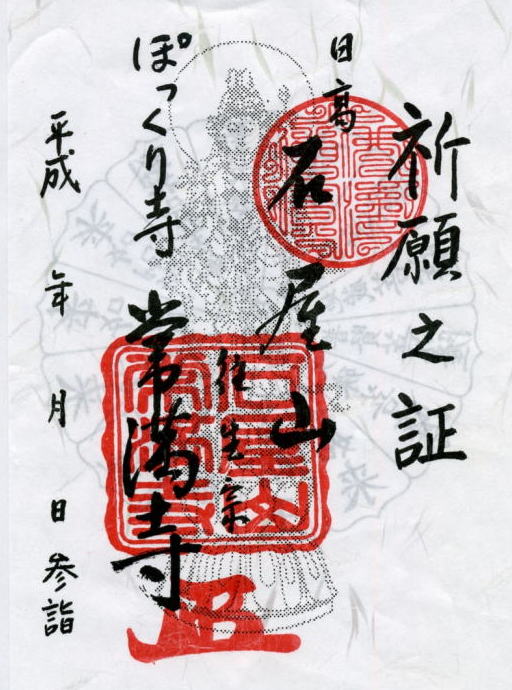 祈願之証
日高
石屋山
ぽっくり寺
常満寺
平成 年 月 日 参詣
石屋山
常満寺